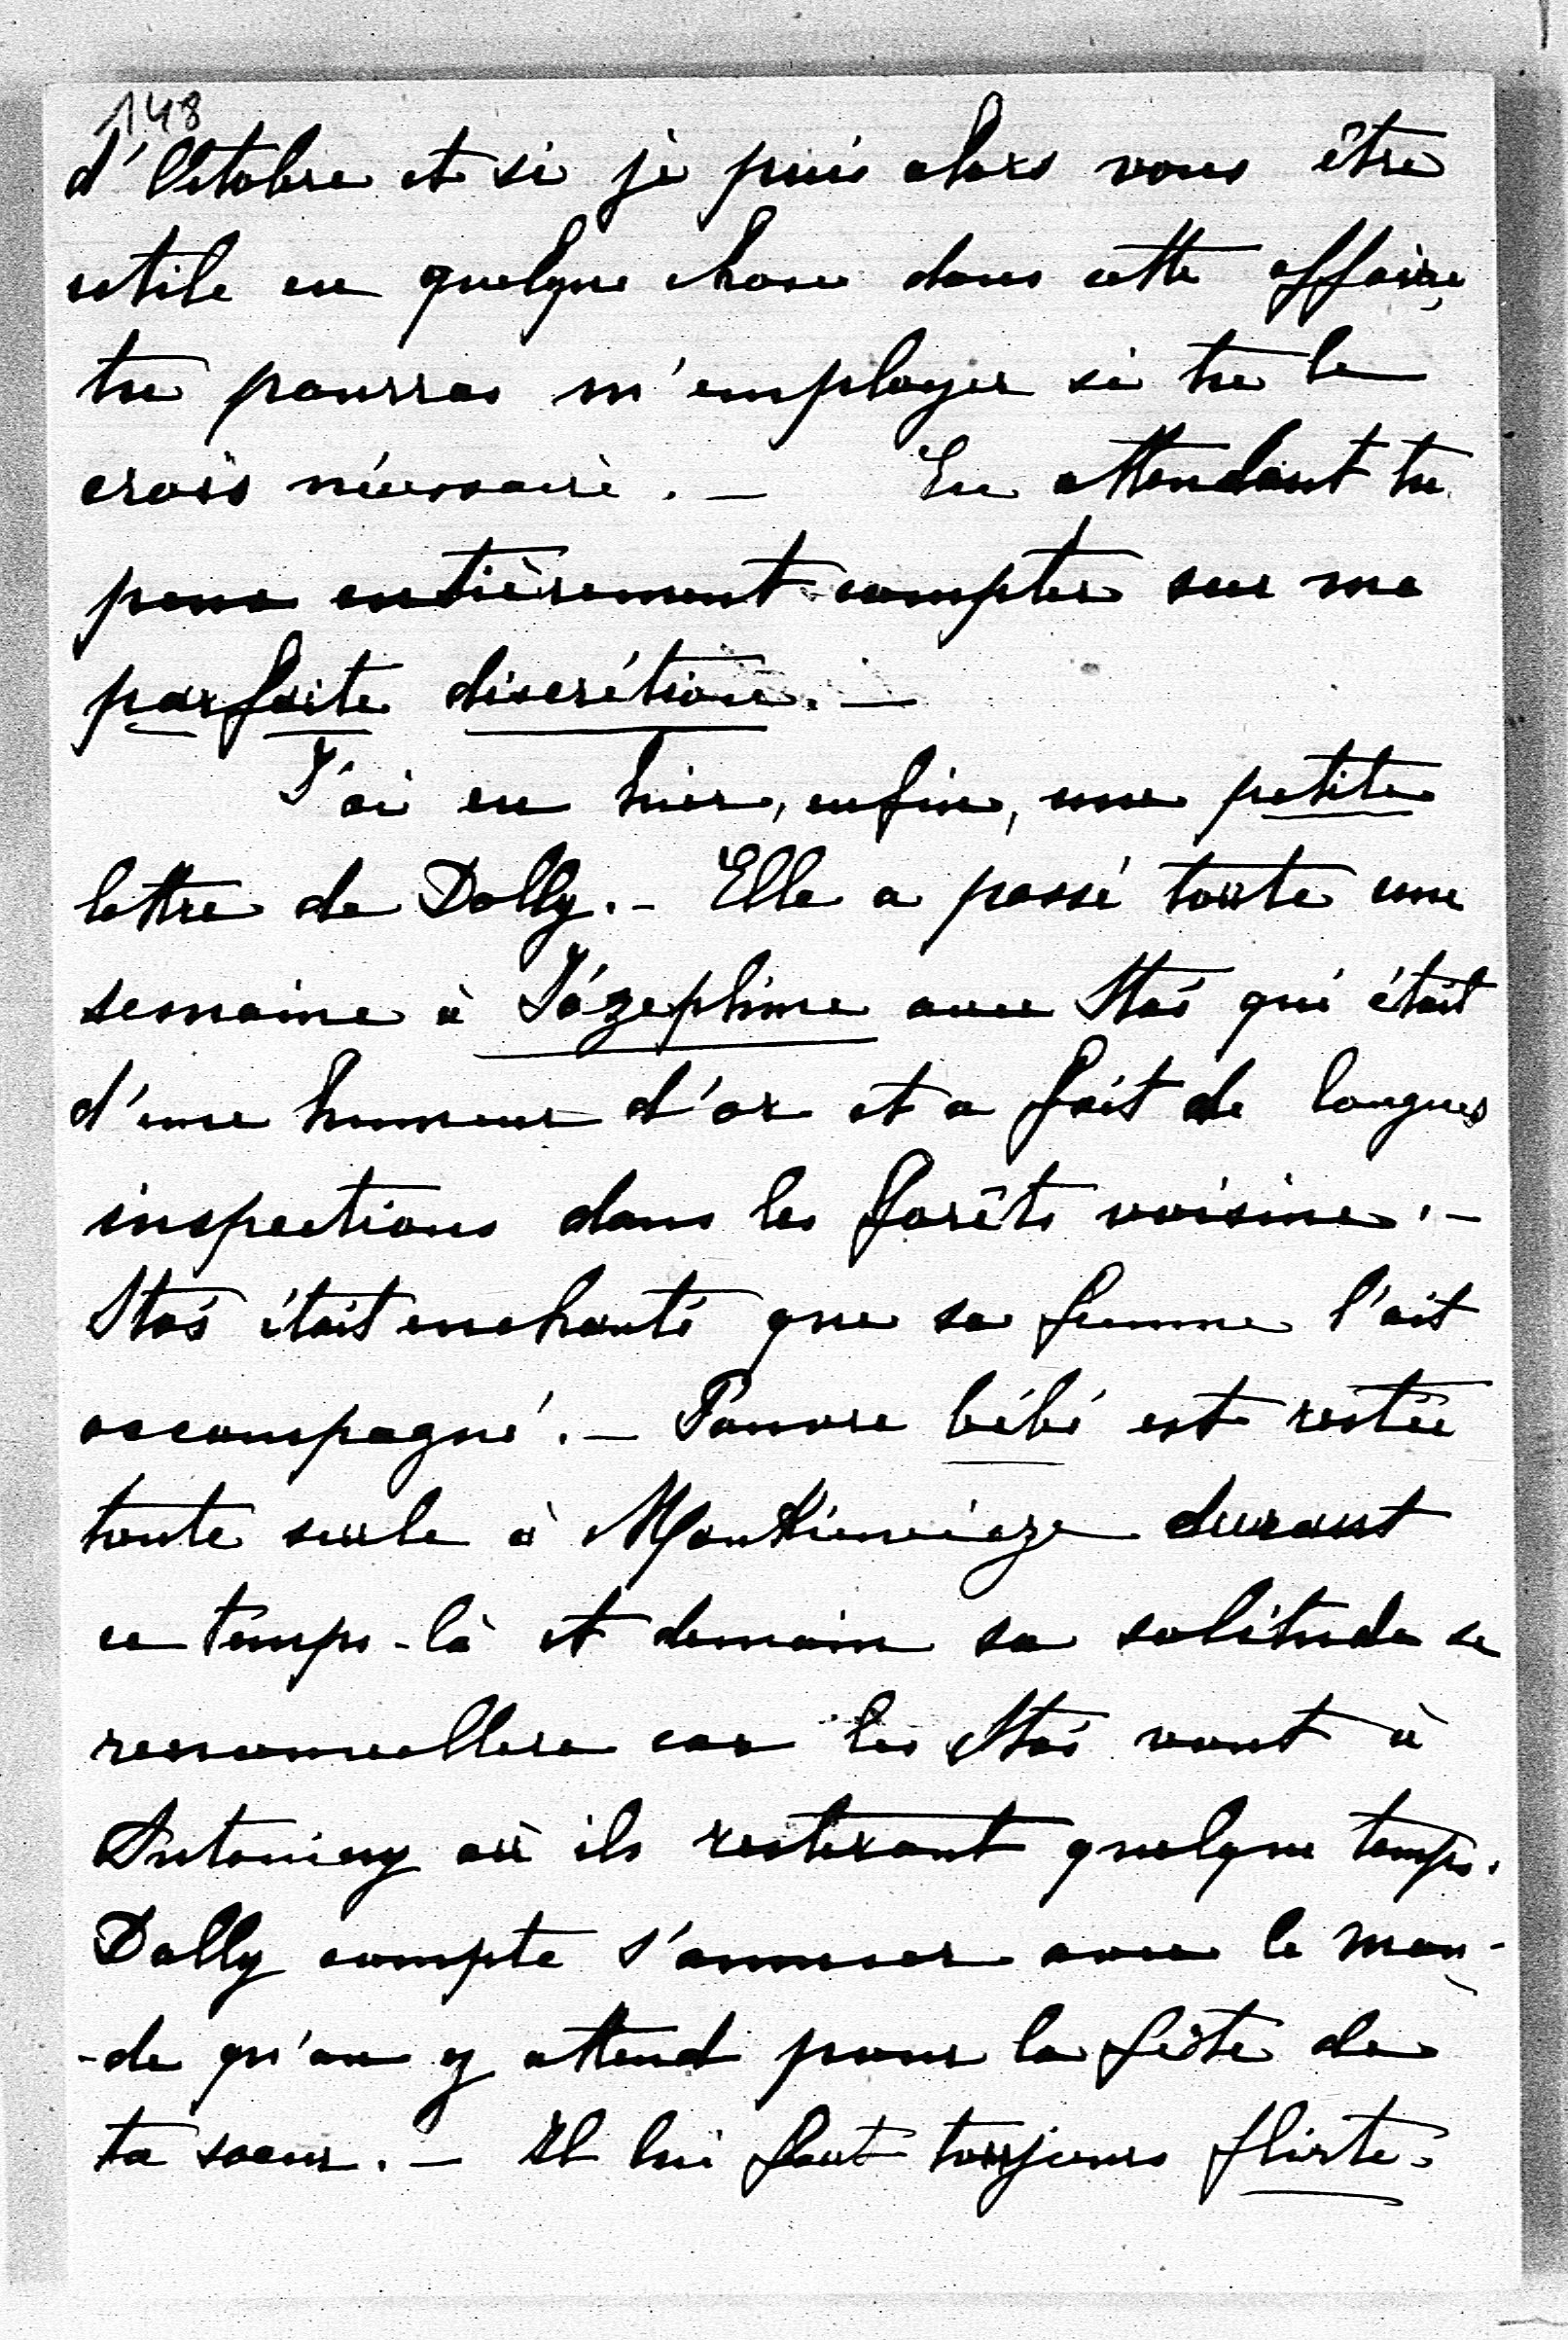 148
d'Octobre et si je puis alors vous être
utile en quelque chose dans cette affaire,
tu pourras m'employer si tu le
crois nécessaire. — En attendant tu
peux entièrement compter sur ma
parfaite discrétion. —
J'ai eu hier, enfin, une petite
lettre de Dolly. - Elle a passé toute une
semaine à Józephine avec Staś qui était
d'une humeur d'or et a fait de longues
inspections dans les forêts voisine. -
Staś était enchanté que sa femme l'ait
accompagné. — Pauvre bébé est restée
toute seule à Mańkiewicze durant
ce temps-là et demain sa solitude se
renouvellera car les Staś vont à
Antoniny où ils resteront quelque temps.
Dolly compte s'amuser avec le mon-
-de qu'on y attend pour la fête de
ta sœur. — Il lui faut toujours flirte.